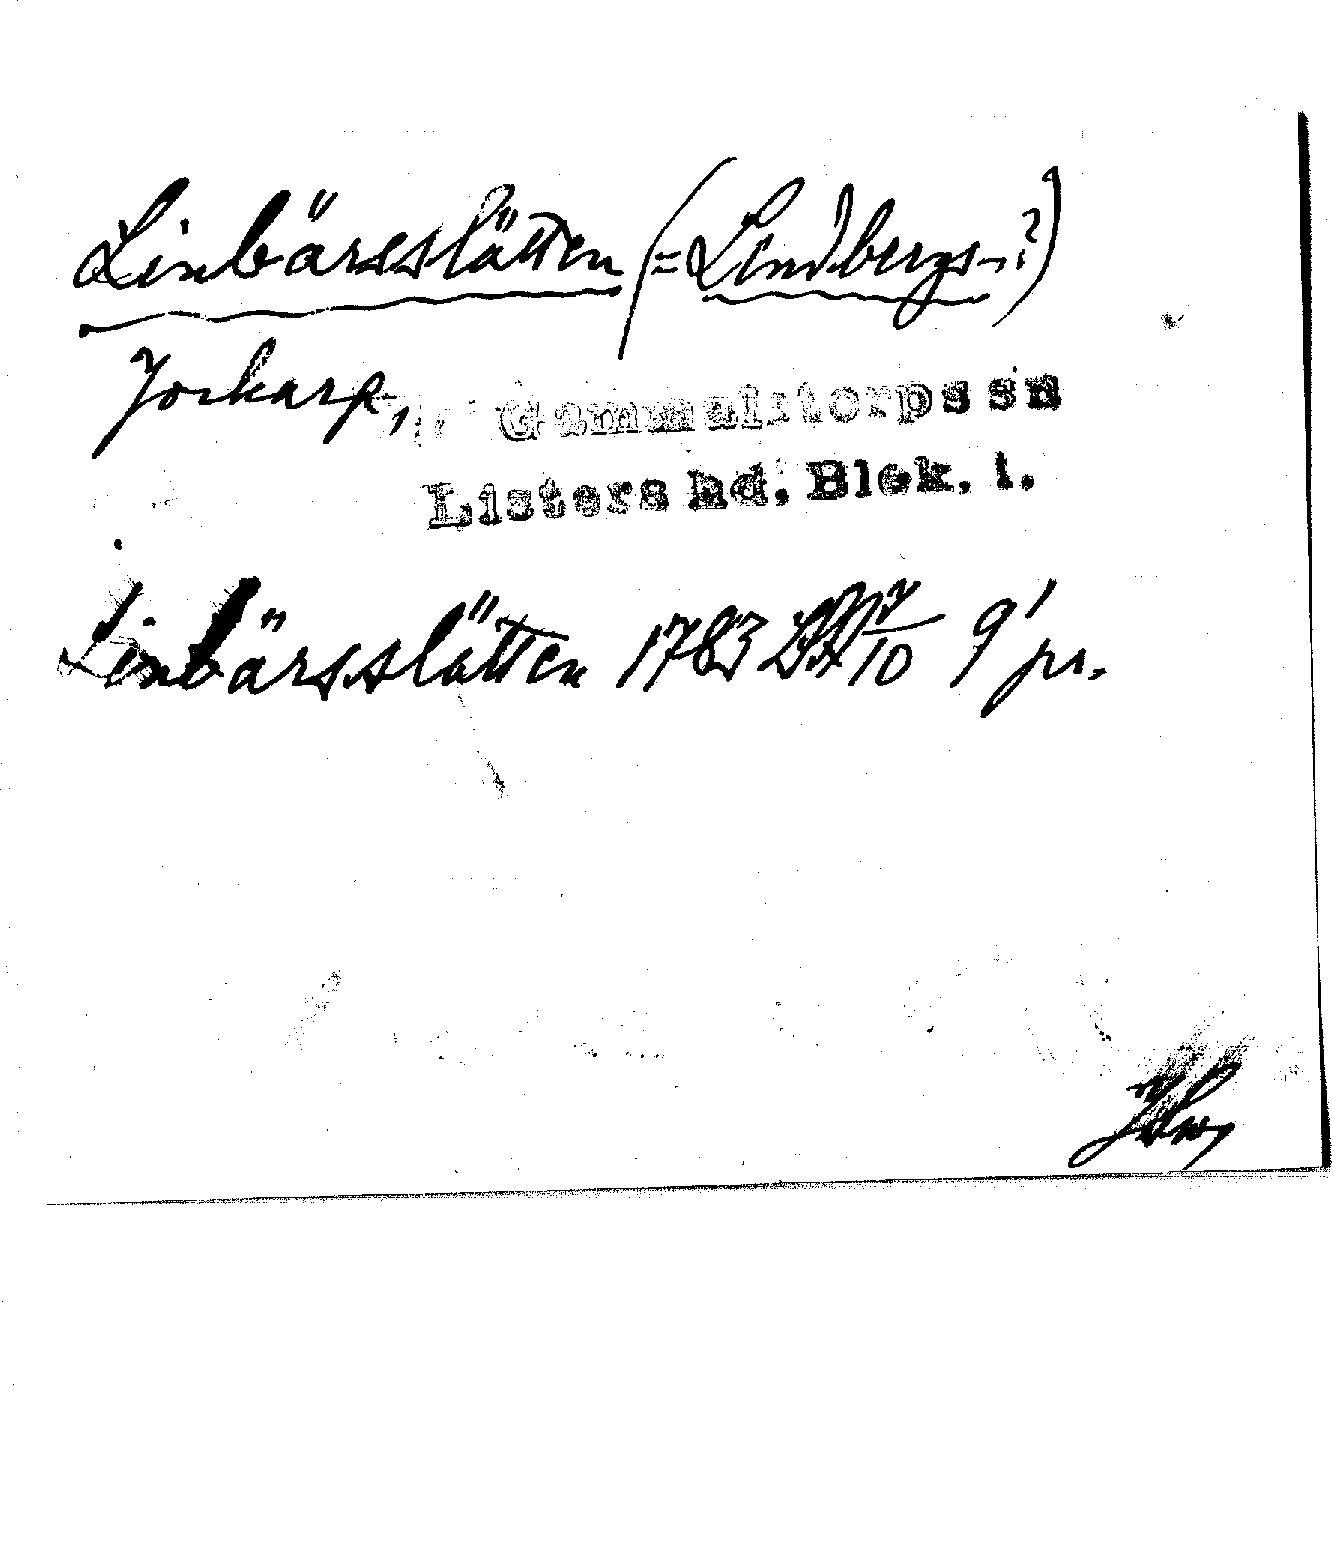 Linbärsslätten (= Lindbergs-?)
Jockarp, Gammalstorps sn
Listers hd. Blek. l.
Linbärsslätten 1783 7/10 9' pr.